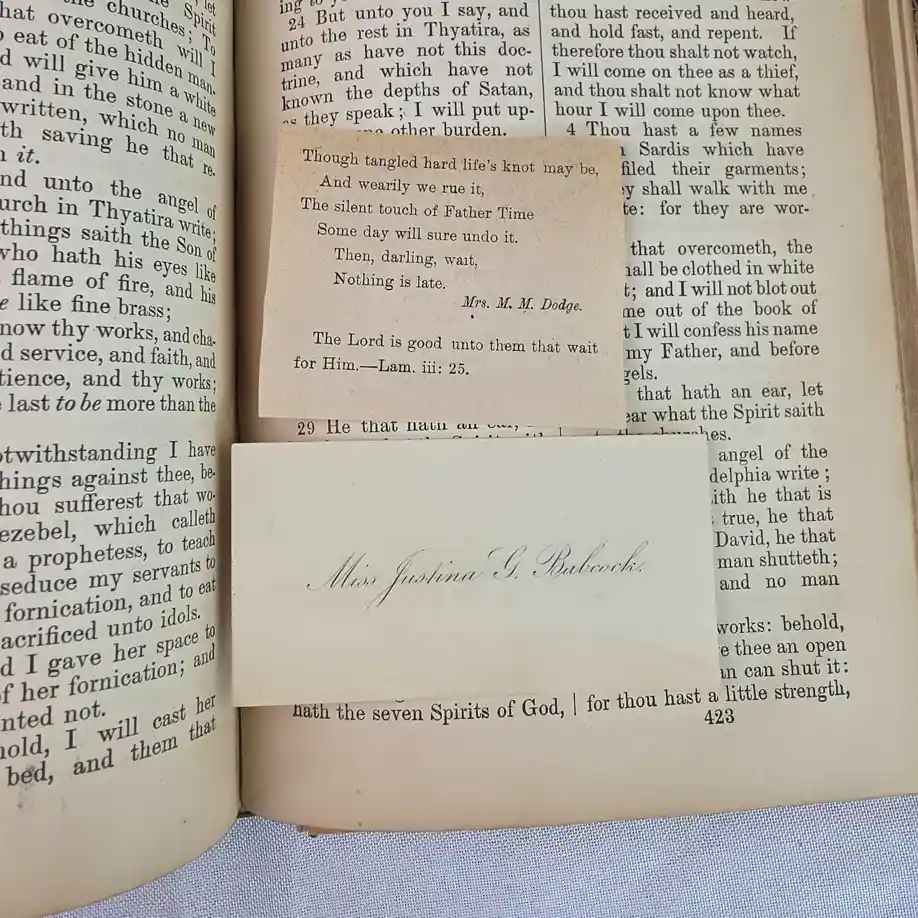 let
the churches; To
hat overcometh will I
eat of the hidden man-
d will give him a white
and in the stone a new
written, which no man
th saving he that re-
it.
nd unto the angel of
urch in Thyatira write;
things saith the Son of
who hath his eyes like
flame of fire, and his
e like fine brass;
now thy works, and cha-
d service, and faith, and
tience, and thy works;
last to be more than the
otwithstanding I have
hings against thee, be-
hou sufferest that wo-
ezebel, which calleth
a prophetess, to teach
seduce my servants to
fornication, and to eat
acrificed unto idols.
d I gave her space to
f her fornication; and
nted not.
hold, I will cast her
bed, and them that
24 But unto you I say, and
unto the rest in Thyatira, as
many as have not this doc-
trine, and which have not
known the depths of Satan,
as they speak; I will put up-
other burden.
Though tangled hard life's knot may be,
And wearily we rue it,
The silent touch of Father Time
Some day will sure undo it.
Then, darling, wait,
Nothing is late.
Mrs. M. M. Dodge.
The Lord is good unto them that wait
for Him.—Lam. iii: 25.
29 He that hath an ear,
Miss Justina G. Babcock.
hath the seven Spirits of God,
thou hast received and heard,
and hold fast, and repent. If
therefore thou shalt not watch,
I will come on thee as a thief,
and thou shalt not know what
hour I will come upon thee.
4 Thou hast a few names
Sardis which have
filed their garments;
ey shall walk with me
te: for they are wor-
that overcometh, the
hall be clothed in white
t; and I will not blot out
me out of the book of
t I will confess his name
my Father, and before
gels.
that hath an ear, let
ear what the Spirit saith
hes.
angel of the
delphia write;
ith he that is
true, he that
David, he that
man shutteth;
and no man
works: behold,
e thee an open
an can shut it:
for thou hast a little strength,
423